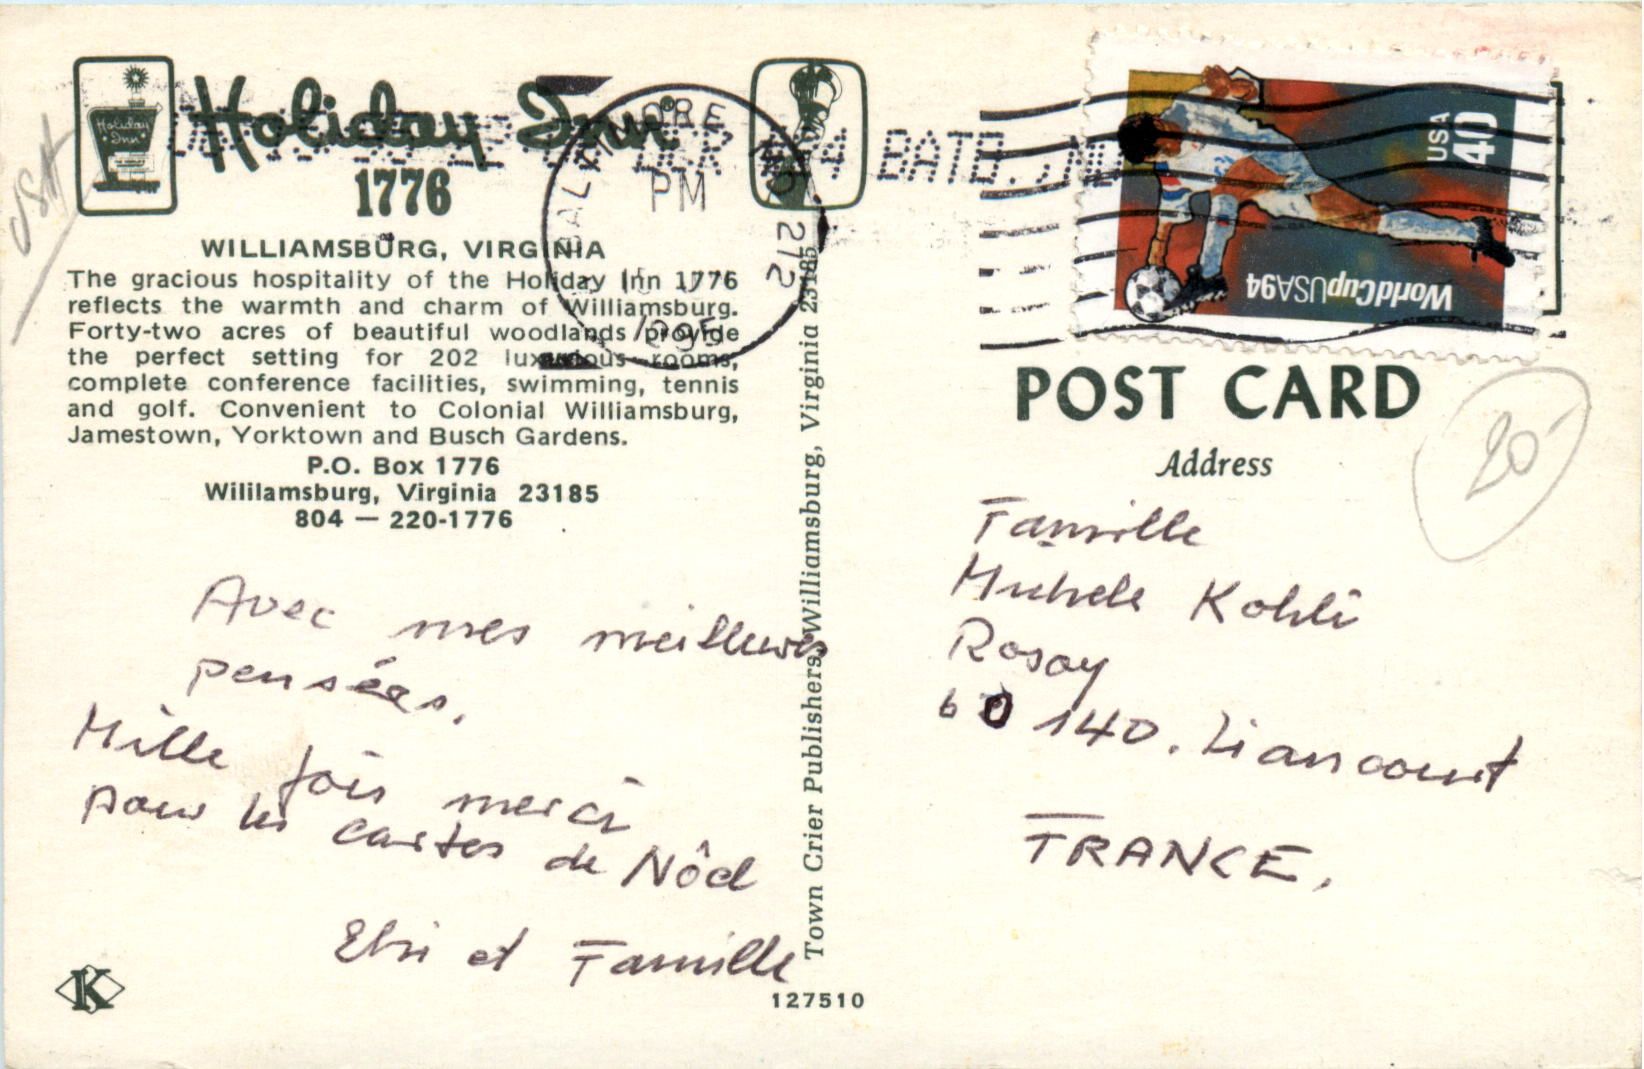 USA
Holiday Inn
Holiday Inn®
1776
WILLIAMSBURG, VIRGINIA
The gracious hospitality of the Holiday Inn 1776
reflects the warmth and charm of Williamsburg.
Forty-two acres of beautiful woodlands provide
the perfect setting for 202 luxurious rooms,
complete conference facilities, swimming, tennis
and golf. Convenient to Colonial Williamsburg,
Jamestown, Yorktown and Busch Gardens.
P.O. Box 1776
Wililamsburg, Virginia 23185
804 — 220-1776
Avec mes meilleures
pensées.
Mille fois merci
pour les cartes de Nôel
Elsi et Famille
K
127510
Town Crier Publishers, Williamsburg, Virginia 23185
BALTIMORE MD 212
PM
1995
USA
40
WorldCupUSA94
POST CARD
Address
20-
Famille
Michele Kohli
Rosoy
60 140. Liancourt
FRANCE.